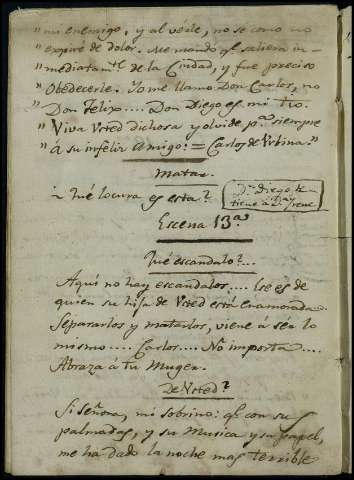 "mi enemigo, y al verle, no se como no
"espiré de dolor. Me mandó q.e saliera in-
"mediatam.te de la Ciudad, y fue preciso
"Obedecerle. Yo me llamo Don Carlos, no
"Don Felix.... Don Diego es mi tio.
"Viva Usted dichosa y olvide p.a siempre
"á su infeliz Amigo: = Carlos de Urbina."
Matar.
¿ Qué locura es esta?
D.n Diego
tiene á D.a Irene
Escena 13.a
Qué escandalo?...
Aqui no hay escandalos.... Ese es de
quien su hija de Usted está enamorada.
Separarlos y matarlos, viene á sér lo
mismo.... Carlos.... No importa....
Abraza á tu Muger.
De Usted?
Si Señora, mi sobrino: q.e con sus
palmadas, y su Musica y su papel,
me ha dado la noche mas terrible